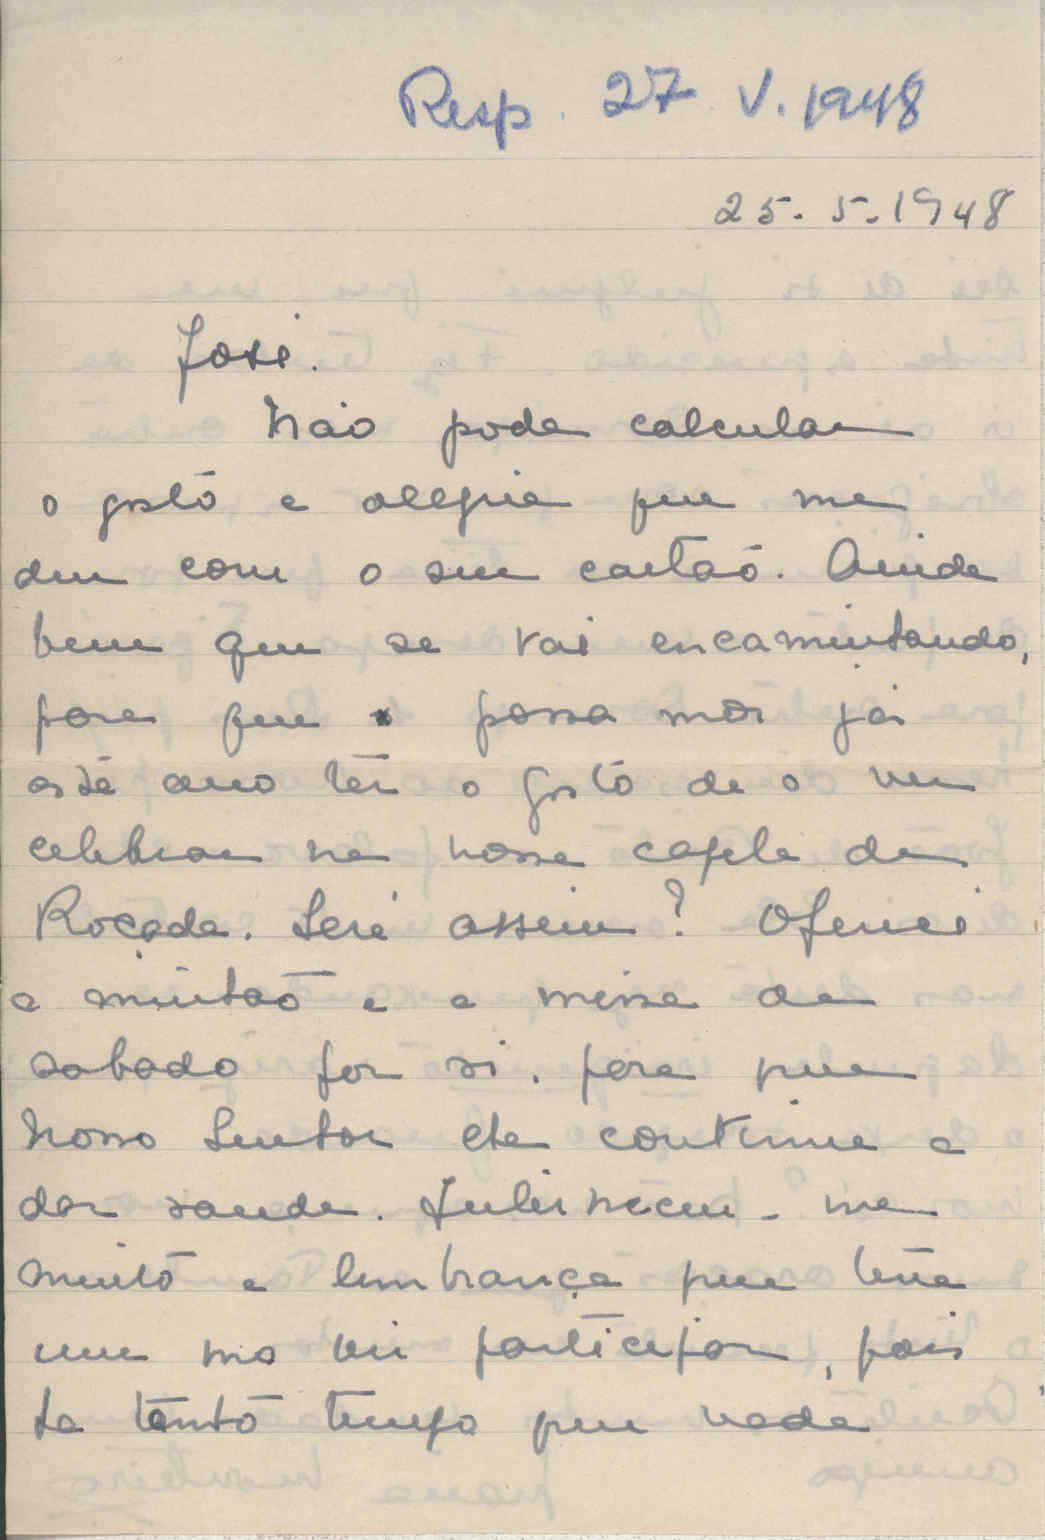 Resp. 27. V. 1948
25. 5. 1948
José.
Não pode calcular
o gosto e alegria que me
deu com o seu cartão. Ainda
bem que se vai encaminhando,
para que possamos já
este ano ter o gosto de o ver
celebrar na nossa capela da
Roçada. Será assim? Ofereci
a minha comunhão e a missa de
sabado por si, para que
Nosso Senhor lhe continue a
dar saude. Enterneceu-me
muito a lembrança que teve
em mo vir participar, pois
ha tanto tempo que nada